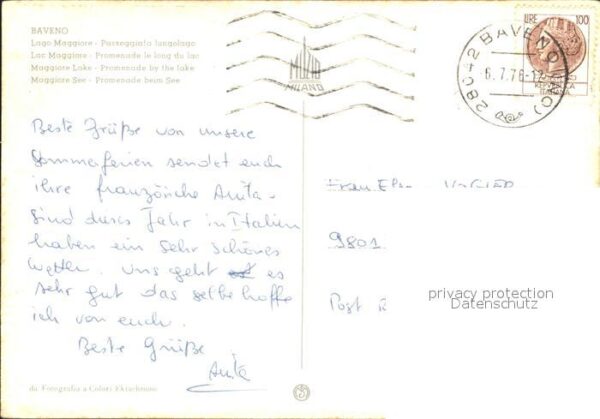 BAVENO
Lago Maggiore - Passeggiata lungolago
Lac Maggiore - Promenade le long du lac
Maggiore Lake - Promenade by the lake
Maggiore See - Promenade beim See
MILANO
LIRE 100
28042 BAVENO
6.7.76-12
Beste Grüße von unsere
Sommerferien sendet euch
ihre französiche Anita.
Sind dieses Jahr in Italien
haben ein sehr schönes
Wetter. Uns geht es
sehr gut das selbe hoffe
ich von euch.
Beste Grüße
Anita
Frau
9801
Post
privacy protection
Datenschutz
da Fotografia a Colori